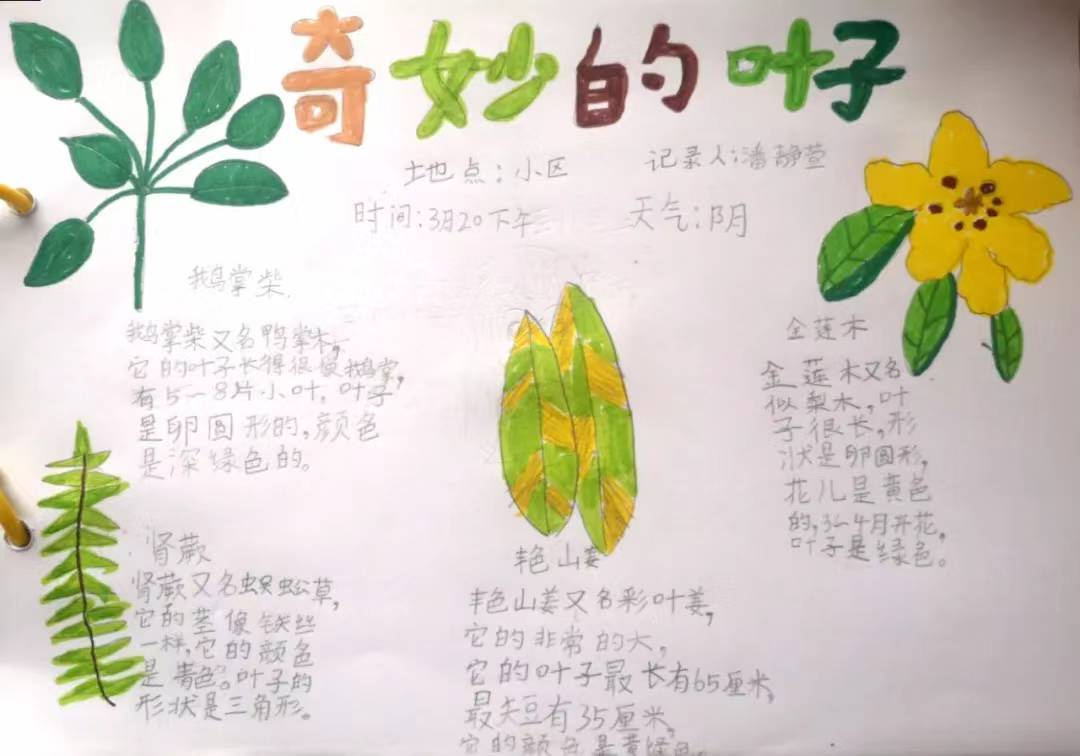 奇妙的叶子
土地点:小区
记录人:潘静萱
时间:3月20下午
天气:阴
鹅掌柴
鹅掌柴又名鸭掌木,
它的叶子长得很像鹅掌,
有5～8片小叶,叶子
是卵圆形的,颜色
是深绿色的。
肾蕨
肾蕨又名蜈蚣草,
它的茎像铁丝
一样,它的颜色
是青色。叶子的
形状是三角形。
艳山姜
艳山姜又名彩叶姜,
它的非常的大,
它的叶子最长有65厘米,
最短有35厘米,
它的颜色是黄绿色。
金莲木
金莲木又名
似梨木,叶
子很长,形
状是卵圆形,
花儿是黄色
的,3～4月开花,
叶子是绿色。